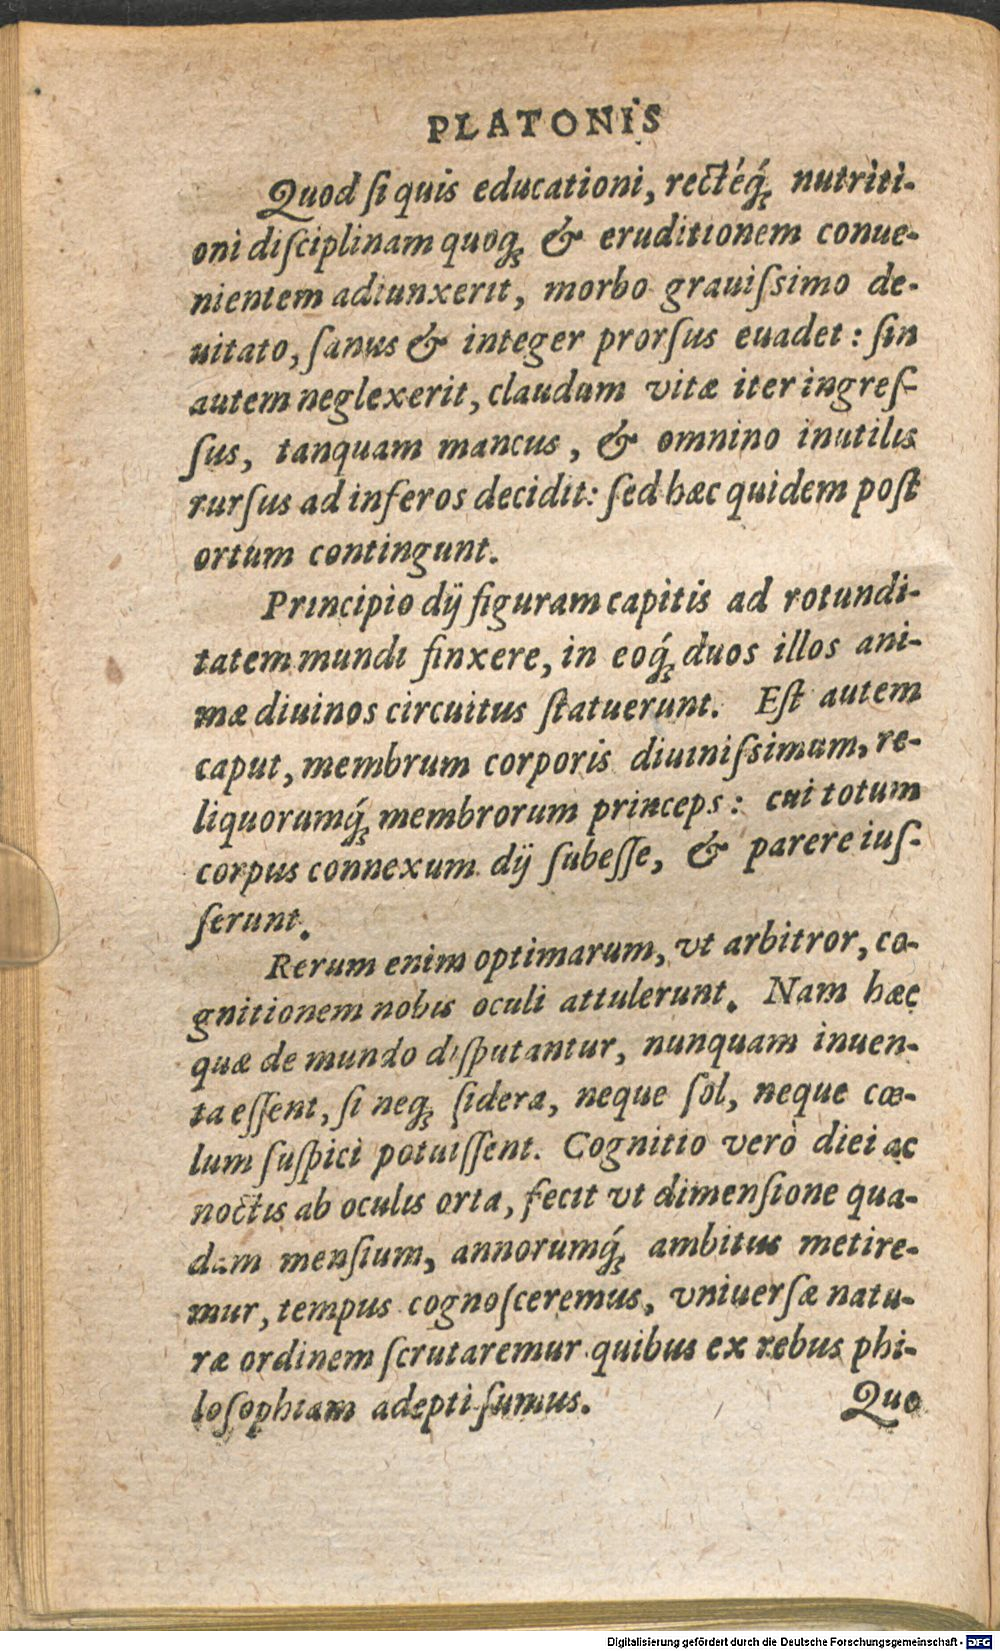 PLATONIS
Quod ſi quis educationi, rectéq́; nutriti-
oni diſciplinam quoq; & eruditionem conue-
nientem adiunxerit, morbo grauiſsimo de-
uitato, ſanus & integer prorſus euadet: ſin
autem neglexerit, claudum vitæ iter ingreſ-
ſus, tanquam mancus, & omnino inutilis
rurſus ad inferos decidit: ſed hæc quidem poſt
ortum contingunt.
Principio dij figuram capitis ad rotundi-
tatem mundi finxere, in eoq́; duos illos ani-
mæ diuinos circuitus ſtatuerunt. Eſt autem
caput, membrum corporis diuiniſsimum, re-
liquorumq́; membrorum princeps: cui totum
corpus connexum dij ſubeſſe, & parere iuſ-
ſerunt.
Rerum enim optimarum, vt arbitror, co-
gnitionem nobis oculi attulerunt. Nam hæc
quæ de mundo diſputantur, nunquam inuen-
ta eſſent, ſi neq; ſidera, neque ſol, neque cœ-
lum ſuſpici potuiſſent. Cognitio verò diei ac
noctis ab oculis orta, fecit vt dimenſione qua-
dam menſium, annorumq́; ambitus metire-
mur, tempus cognoſceremus, vniuerſæ natu-
ræ ordinem ſcrutaremur quibus ex rebus phi-
loſophiam adepti ſumus.
Quo
Digitalisierung gefördert durch die Deutsche Forschungsgemeinschaft - DFG